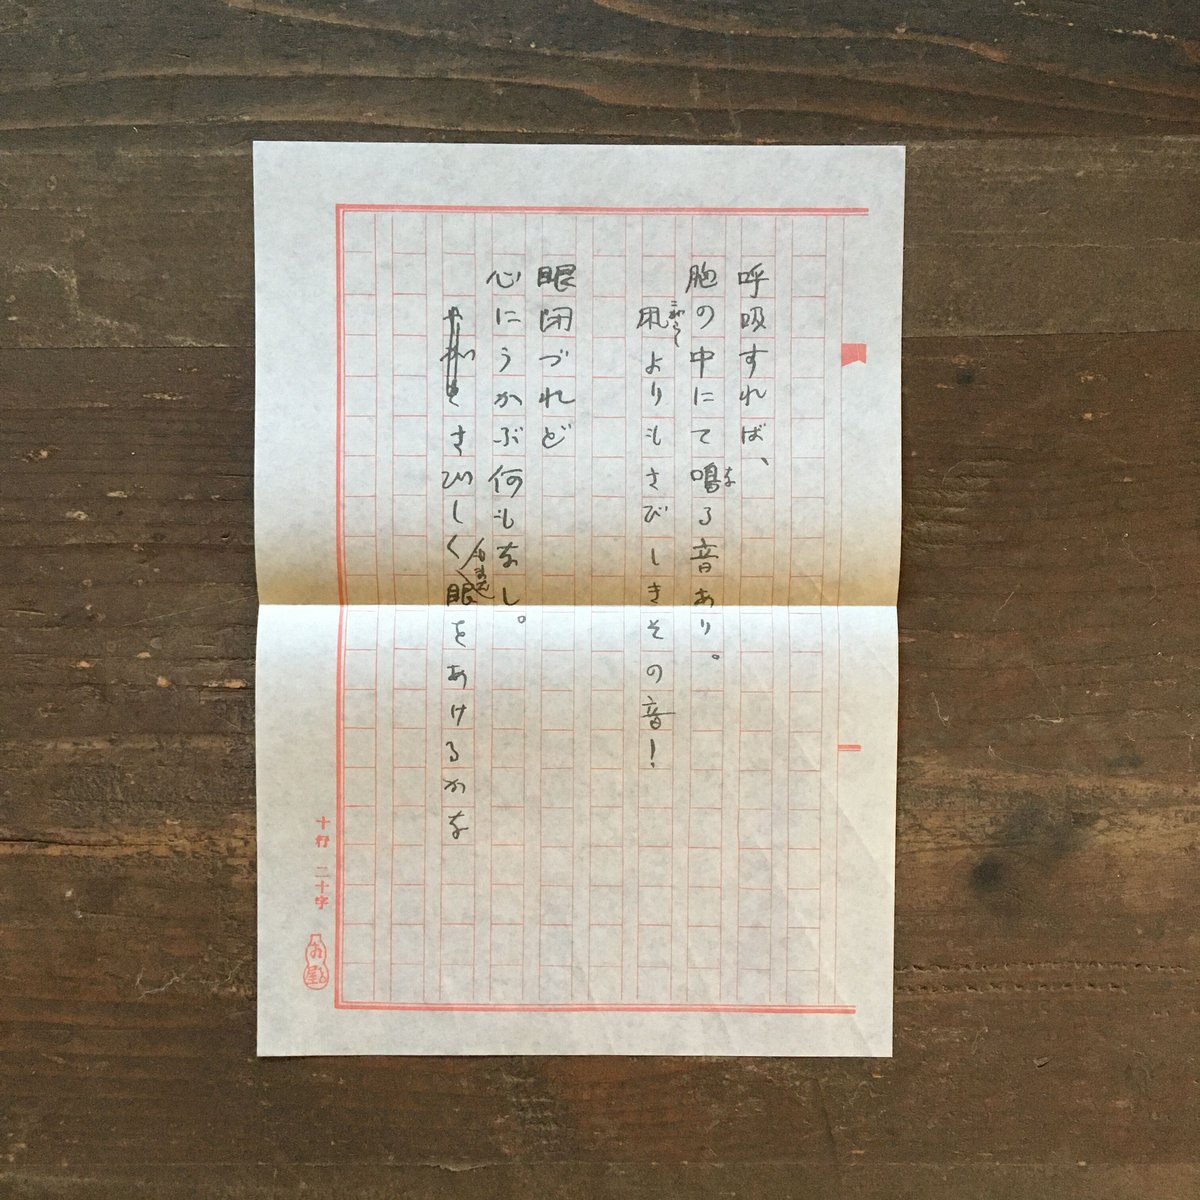 呼吸すれば、
胸の中にて鳴る音あり。
な
凩よりもさびしきその音!
こがらし
眼閉づれど
心にうかぶ何もなし。
さびしくもまた眼をあけるかな
十行 二十字